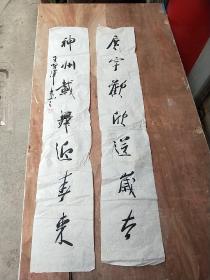 宇歡欣送歲去
神州載舞迎春來